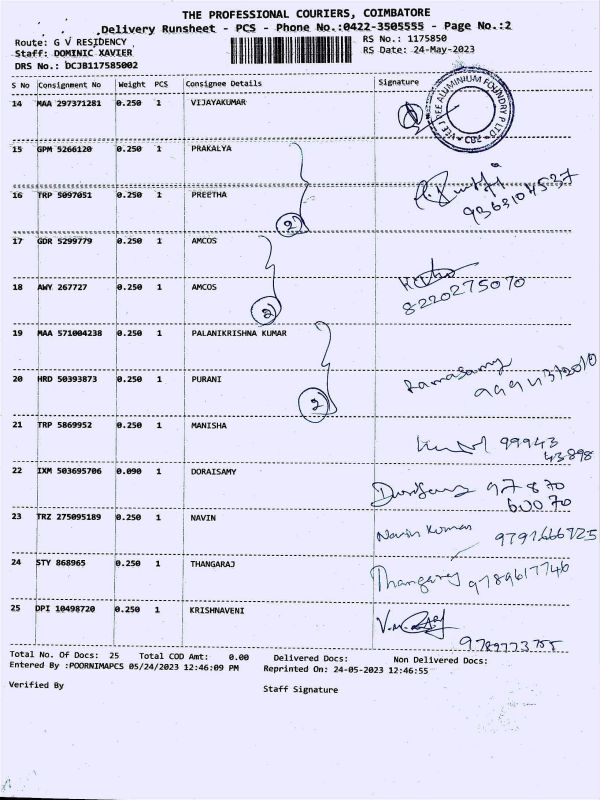 THE PROFESSIONAL COURIERS, COIMBATORE
Delivery Runsheet - PCS - Phone No.:0422-3505555 - Page No.:2
Route: G V RESIDENCY
RS No.: 1175850
Staff: DOMINIC XAVIER
RS Date: 24-May-2023
DRS No.: DCJB117585002
S No Consignment No Weight PCS Consignee Details Signature
14 MAA 297371281 0.250 1 VIJAYAKUMAR
ALUMINIUM FOUNDRY P LTD
CBE
15 GPM 5266120 0.250 1 PRAKALYA
16 TRP 5097051 0.250 1 PREETHA
2
17 GDR 5299779 0.250 1 AMCOS
18 AWY 267727 0.250 1 AMCOS
2
8220275070
19 MAA 571004238 0.250 1 PALANIKRISHNA KUMAR
20 HRD 50393873 0.250 1 PURANI
2
Ramasamy
21 TRP 5869952 0.250 1 MANISHA
99943
43898
22 IXM 503695706 0.090 1 DORAISAMY
97870
60070
23 TRZ 275095189 0.250 1 NAVIN
Navin Kumar 9791666725
24 STY 868965 0.250 1 THANGARAJ
Thangaraj 9789617746
25 DPI 10498720 0.250 1 KRISHNAVENI
9789773755
Total No. Of Docs: 25 Total COD Amt: 0.00 Delivered Docs: Non Delivered Docs:
Entered By :POORNIMAPCS 05/24/2023 12:46:09 PM Reprinted On: 24-05-2023 12:46:55
Verified By
Staff Signature